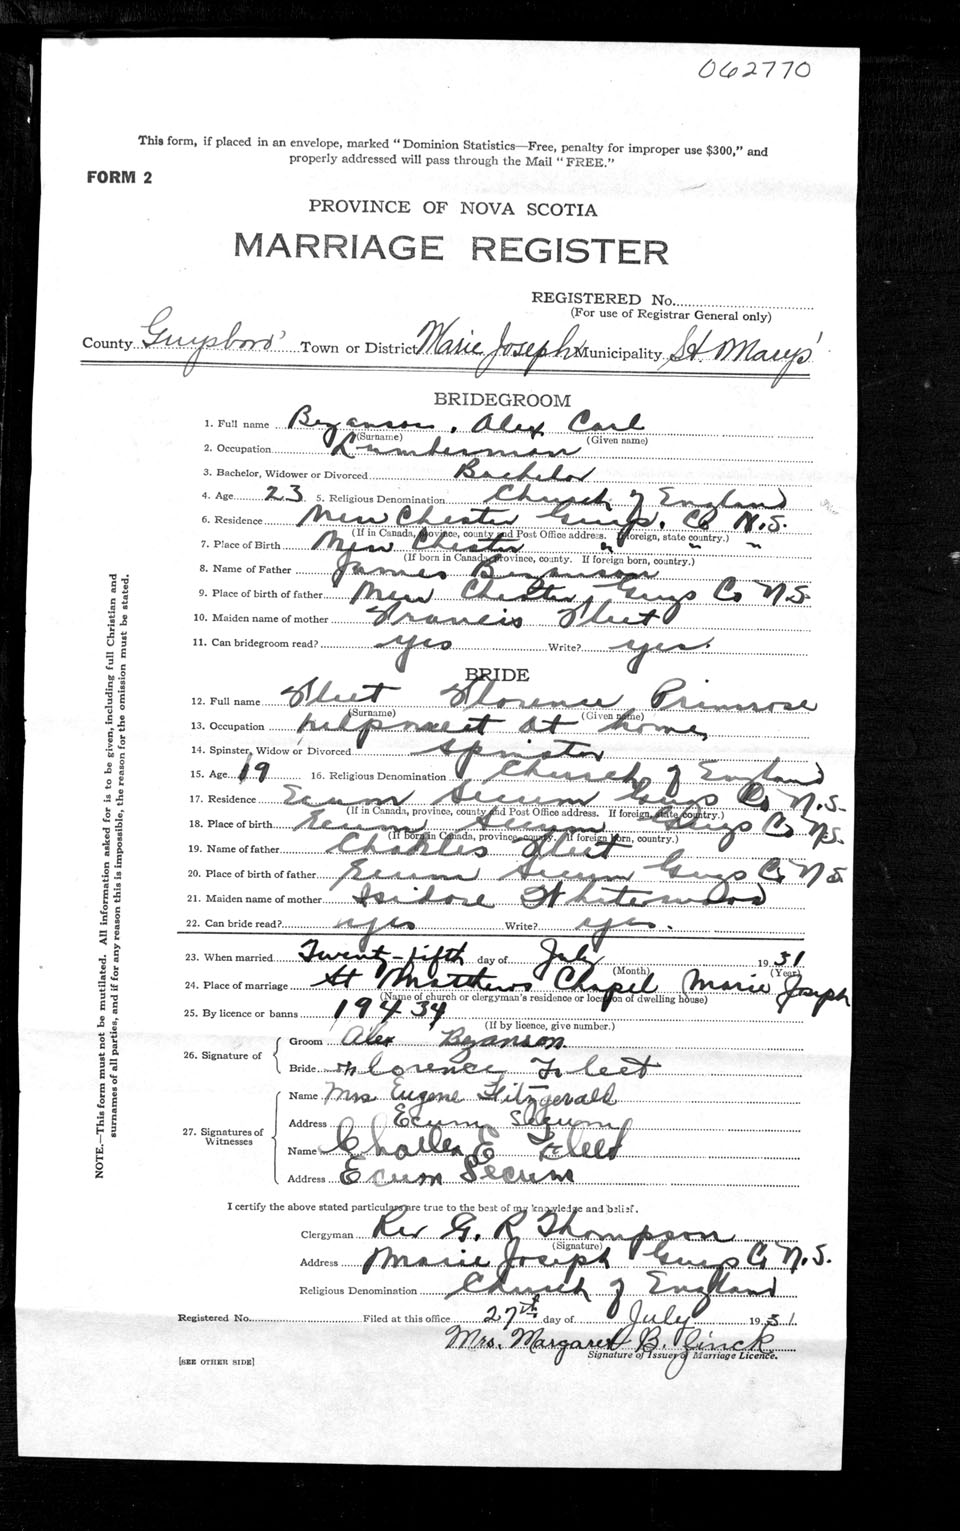 062770
This form, if placed in an envelope, marked "Dominion Statistics—Free, penalty for improper use $300," and
properly addressed will pass through the Mail "FREE."
FORM 2
PROVINCE OF NOVA SCOTIA
MARRIAGE REGISTER
REGISTERED No.
(For use of Registrar General only)
County Guysboro' Town or District Marie Joseph Municipality St. Marys'
BRIDEGROOM
1. Full name Bezanson, Alex Carl
(Surname) (Given name)
2. Occupation Lumberman
3. Bachelor, Widower or Divorced Bachelor
4. Age 23 5. Religious Denomination Church of England
6. Residence New Chester Guys. Co N.S.
(If in Canada, province, county and Post Office address. If foreign, state country.)
7. Place of Birth New Chester " " "
(If born in Canada, province, county. If foreign born, country.)
8. Name of Father James Bezanson
9. Place of birth of father New Chester Guys Co N.S.
10. Maiden name of mother Francis Fleet
11. Can bridegroom read? yes Write? yes.
BRIDE
12. Full name Fleet Florence Primrose
(Surname) (Given name)
13. Occupation helpmeet at home
14. Spinster, Widow or Divorced Spinster
15. Age 19 16. Religious Denomination Church of England
17. Residence Ecum Secum Guys Co N.S.
(If in Canada, province, county and Post Office address. If foreign, state country.)
18. Place of birth Ecum Secum Guys Co N.S.
(If born in Canada, province, county. If foreign born, country.)
19. Name of father Charles Fleet
20. Place of birth of father Ecum Secum Guys Co N S
21. Maiden name of mother Isidore Whitewood
22. Can bride read? yes Write? yes.
23. When married Twenty-fifth day of July 1931
(Month) (Year)
24. Place of marriage St Matthews Chapel Marie Joseph
(Name of church or clergyman's residence or location of dwelling house)
25. By licence or banns 19434
(If by licence, give number.)
26. Signature of Groom Alex Bezanson
Bride Florence Fleet
27. Signatures of Witnesses Name Mrs Eugene Fitzgerald
Address Ecum Secum
Name Charles E Fleet
Address Ecum Secum
I certify the above stated particulars are true to the best of my knowledge and belief.
Clergyman Rev G. R Thompson
(Signature)
Address Marie Joseph Guys Co N.S.
Religious Denomination Church of England
Registered No. Filed at this office 27th day of July 1931
Mrs. Margaret B.
Signature of Issuer of Marriage Licence.
[SEE OTHER SIDE]
NOTE.—This form must not be mutilated. All information asked for is to be given, including full Christian and
surnames of all parties, and if for any reason this is impossible, the reason for the omission must be stated.